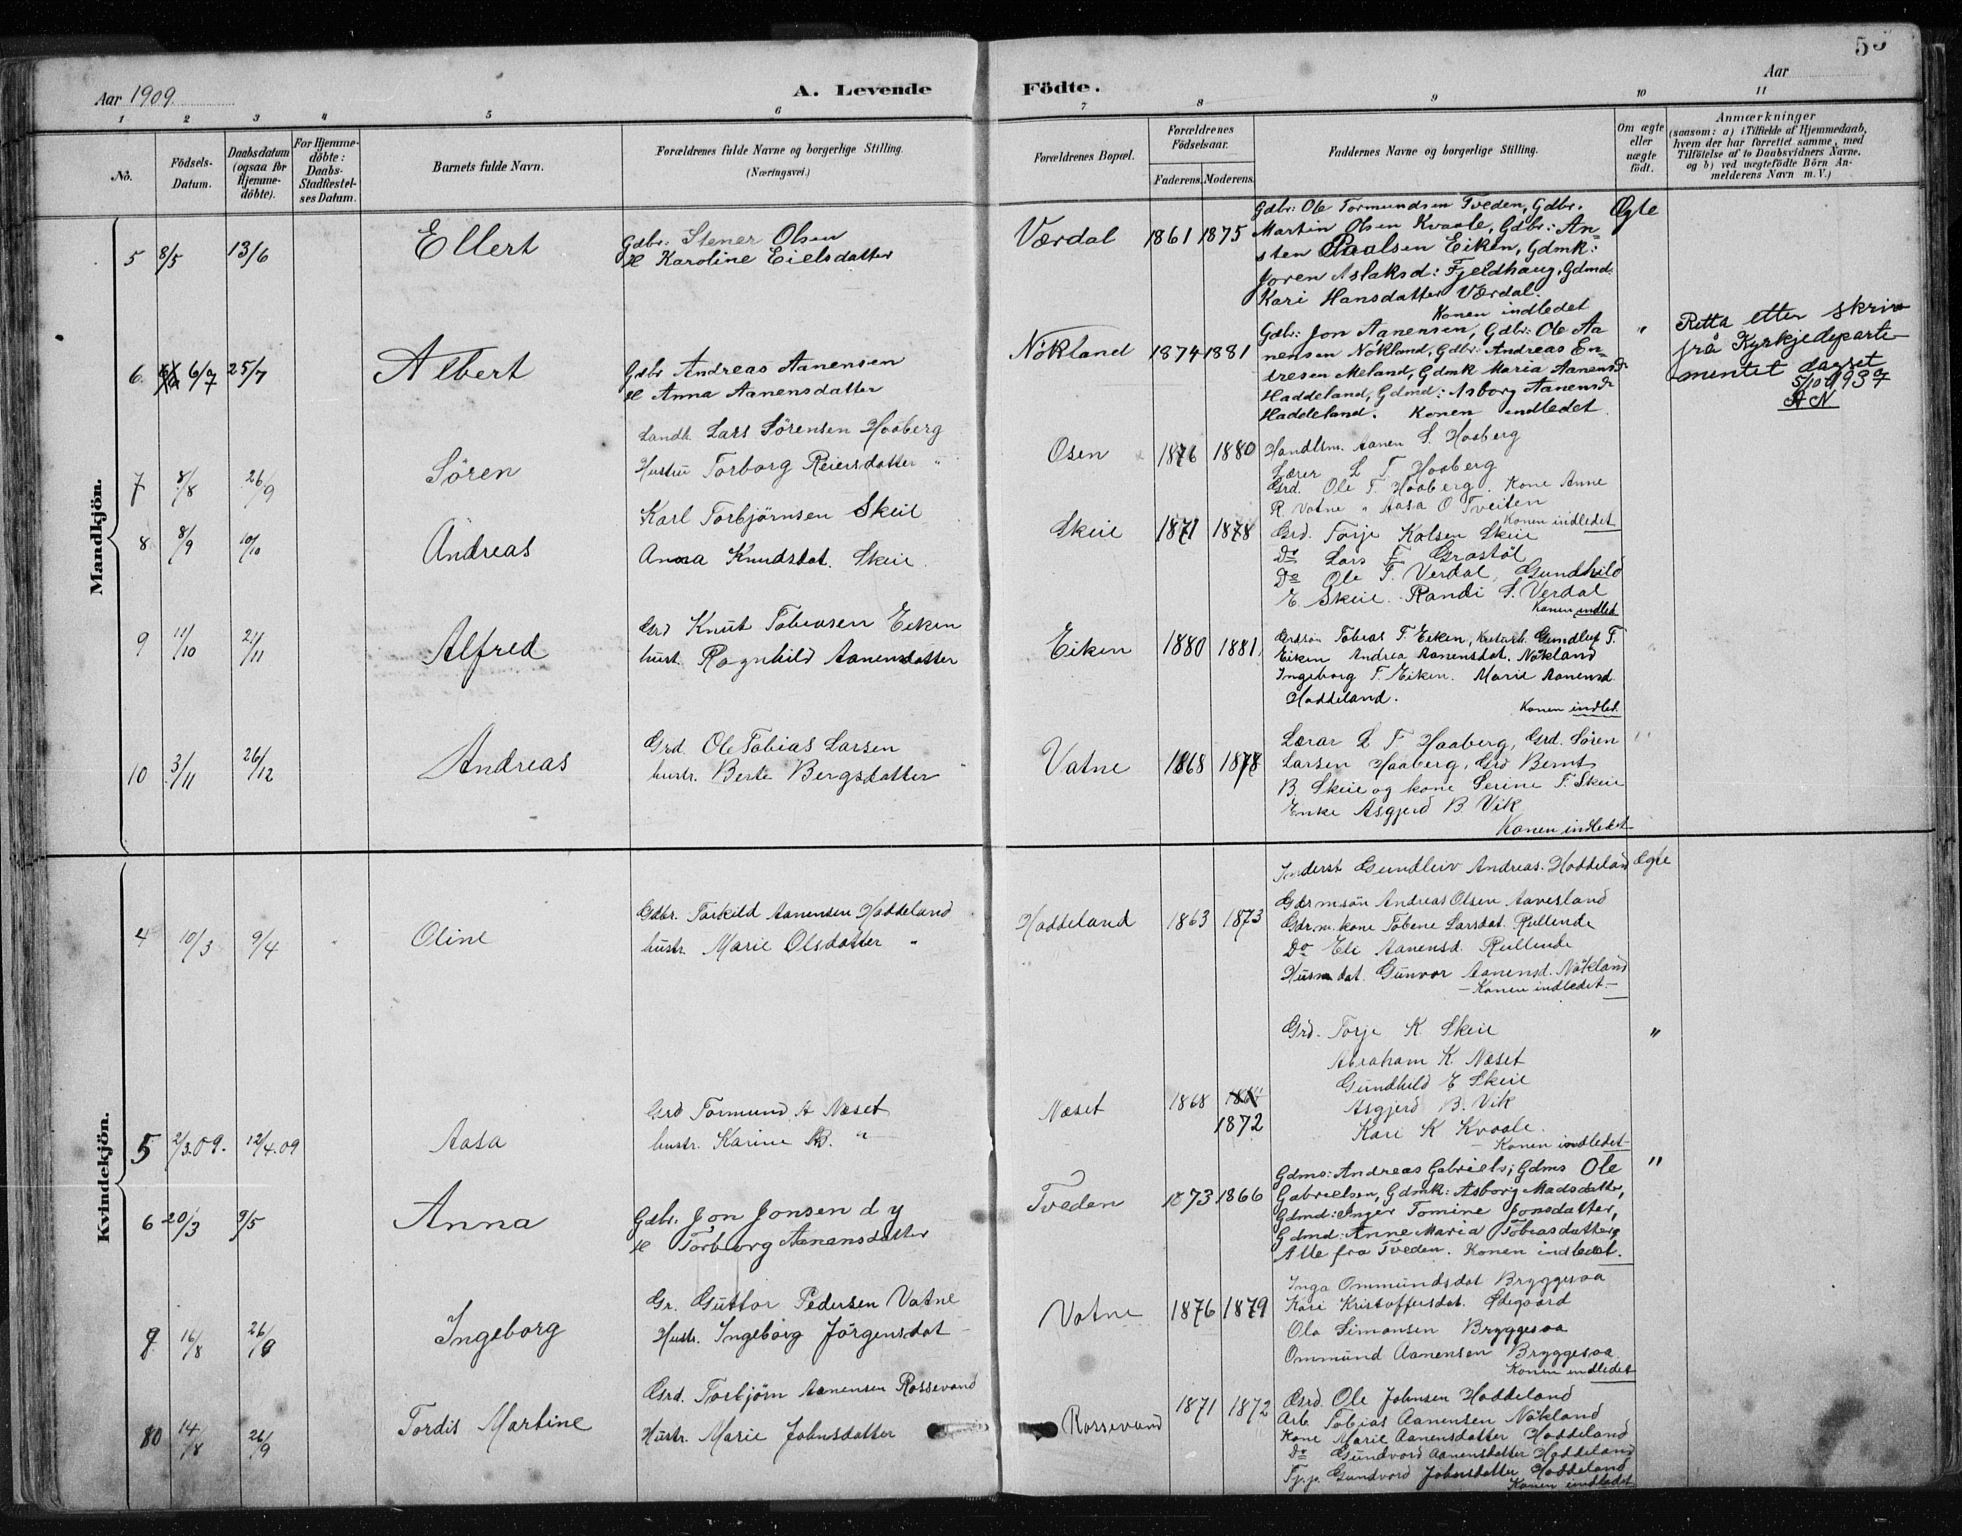 55
Aar 1909
A. Levende Födte.
Aar
1 2 3 4 5 6 7 8 9 10 11
No.
Födsels-Datum.
Daabsdatum (ogsaa for Hjemmedöbte).
For Hjemmedöbte: Daabs-Stadfæstelses Datum.
Barnets fulde Navn.
Forældrenes fulde Navne og borgerlige Stilling.
(Næringsvei.)
Forældrenes Bopæl.
Forældrenes Födselsaar.
Faderens. Moderens.
Faddernes Navne og borgerlige Stilling.
Om ægte eller uægte födt.
Anmærkninger
(saasom: a) i Tilfælde af Hjemmedaab, hvem der har forrettet samme, med Tilföielse af to Daabsvidners Navne. og b) ved uægtefödte Börn Anmelderens Navn m.V.)
Mandkjön.
5 8/5 13/6 Ellert
Gdbr. Stener Olsen
H Karoline Eielsdatter
Værdal 1861 1875
Gdbr: Ole Tormundsen Tveden, Gdbr.
Martin Olsen Kvaale, Gdbr: An-
sten Paalsen Eiken, Gdmk:
Joren Aslaksd: Fjeldhaug, Gdmd:
Kari Hansdatter Værdal.
Konen indledet
Ægte
6. 6/7 25/7 Albert
Gdbr Andreas Aanensen
H Anna Aanensdatter
Nökland 1874 1881
Gdbr: Jon Aanensen, Gdbr: Ole Aa-
nensen Nökland, Gdbr: Andreas En-
dresen Meland, Gdmk Maria Aanensdr
Haddeland, Gdmd: Asborg Aanensdr
Haddeland. Konen indledet
"
Retta etter skriv
frå Kyrkjedeparte-
mentet dagset
5/10 1937
AN
7 8/8 26/9 Sören
Landh. Lars Sörensen Haaberg
Hustru Torborg Reiersdatter "
Osen 1876 1880
Handlsm. Aanen S. Haaberg
Lærer L T. Haaberg
Grd. Ole T. Haaberg. Kone Anne
R. Vatne " Aasa O Tveiten
Konen indledet
8 8/9 10/10 Andreas
Karl Torbjörnsen Skeie
Anna Knudsdat. Skeie
Skeie 1871 1878
Grd. Torje Kolsen Skeie
Do Lars T Grostöl
Do Ole T. Verdal, Gundhild
E. Skeie. Randi S. Verdal
Konen indled
9 11/10 21/11 Alfred
Grd Knut Tobiasen Eiken
hust. Ragnhild Aanensdatter
Eiken 1880 1881
Grdsøn Tobias T. Eiken, Gundleif T.
Eiken Andrea Aanensdat. Nökland
Ingeborg T. Eiken. Marie Aanensd
Haddeland.
Konen indled.
10 3/11 26/12 Andreas
Grd. Ole Tobias Larsen
hustr. Berte Bergsdatter
Vatne 1868 1878
Lærar L T Haaberg, Grd. Sören
Larsen Haaberg, Grd Bernt
B. Skeie og kone Serine T. Skeie
Enke Asgjerd B. Vik
Konen indledet
"
Kvindekjön.
4 10/3 9/4 Oline
Gdbr. Torkild Aanensen Haddeland
hustr. Marie Olsdatter "
Haddeland 1863 1873
Inderst Gundleiv Andreas. Haddeland
Gdrmsön Andreas Olsen Aavesland
Gdr.m. kone Tobene Larsdat. Rullende
Do Eli Aanensd. Rullende
Husm dat. Gunvor Aanensd. Nökland
- Konen indledet -
Ægte
5 2/3.09. 12/4.09 Aasa
Grd Tormund A Næset
hustr. Karine B. "
Næset 1868 1872
Grd. Torje K. Skeie
Abraham K. Næset
Gundhild E Skeie
Asgjerd B. Vik
Kari K Kvaale.
- Konen indledet -
"
6 20/3 9/5 Anna
Gdbr. Jon Jonsen d y
H Torborg Aanensdatter
Tveden 1873 1866
Gdms: Andreas Gabriels; Gdms Ole
Gabrielsen, Gdmk: Asborg Madsdatter,
Gdmd: Inger Tomine Jonsdatter,
Gdmd: Anne Maria Tobiasdatter,
Alle fra Tveden. Konen indledet.
"
9 16/8 26/9 Ingeborg
Gr. Guttor Pedersen Vatne
Hustr. Ingeborg Jörgensdat
Vatne 1876 1879
Inga Ommundsdat Bryggesaa
Kari Kristoffersdat. Ødegaard
Ola Simonsen Bryggesaa
Ommund Aanensen Bryggesaa
Konen indledet
10 14/8 26/9 Tordis Martine
Grd. Torbjörn Aanensen Rossevand
Hustr. Marie Johnsdatter
Rossevand 1871 1872
Grd. Ole Johnsen Haddeland
Arb. Tobias Aanensen Nökland
Kone Marie Aanensdatter Haddeland
Do Gundvord Aanensdatter Haddeland
Tj.p. Gundvord Johnsdatter Haddeland
Konen indledet